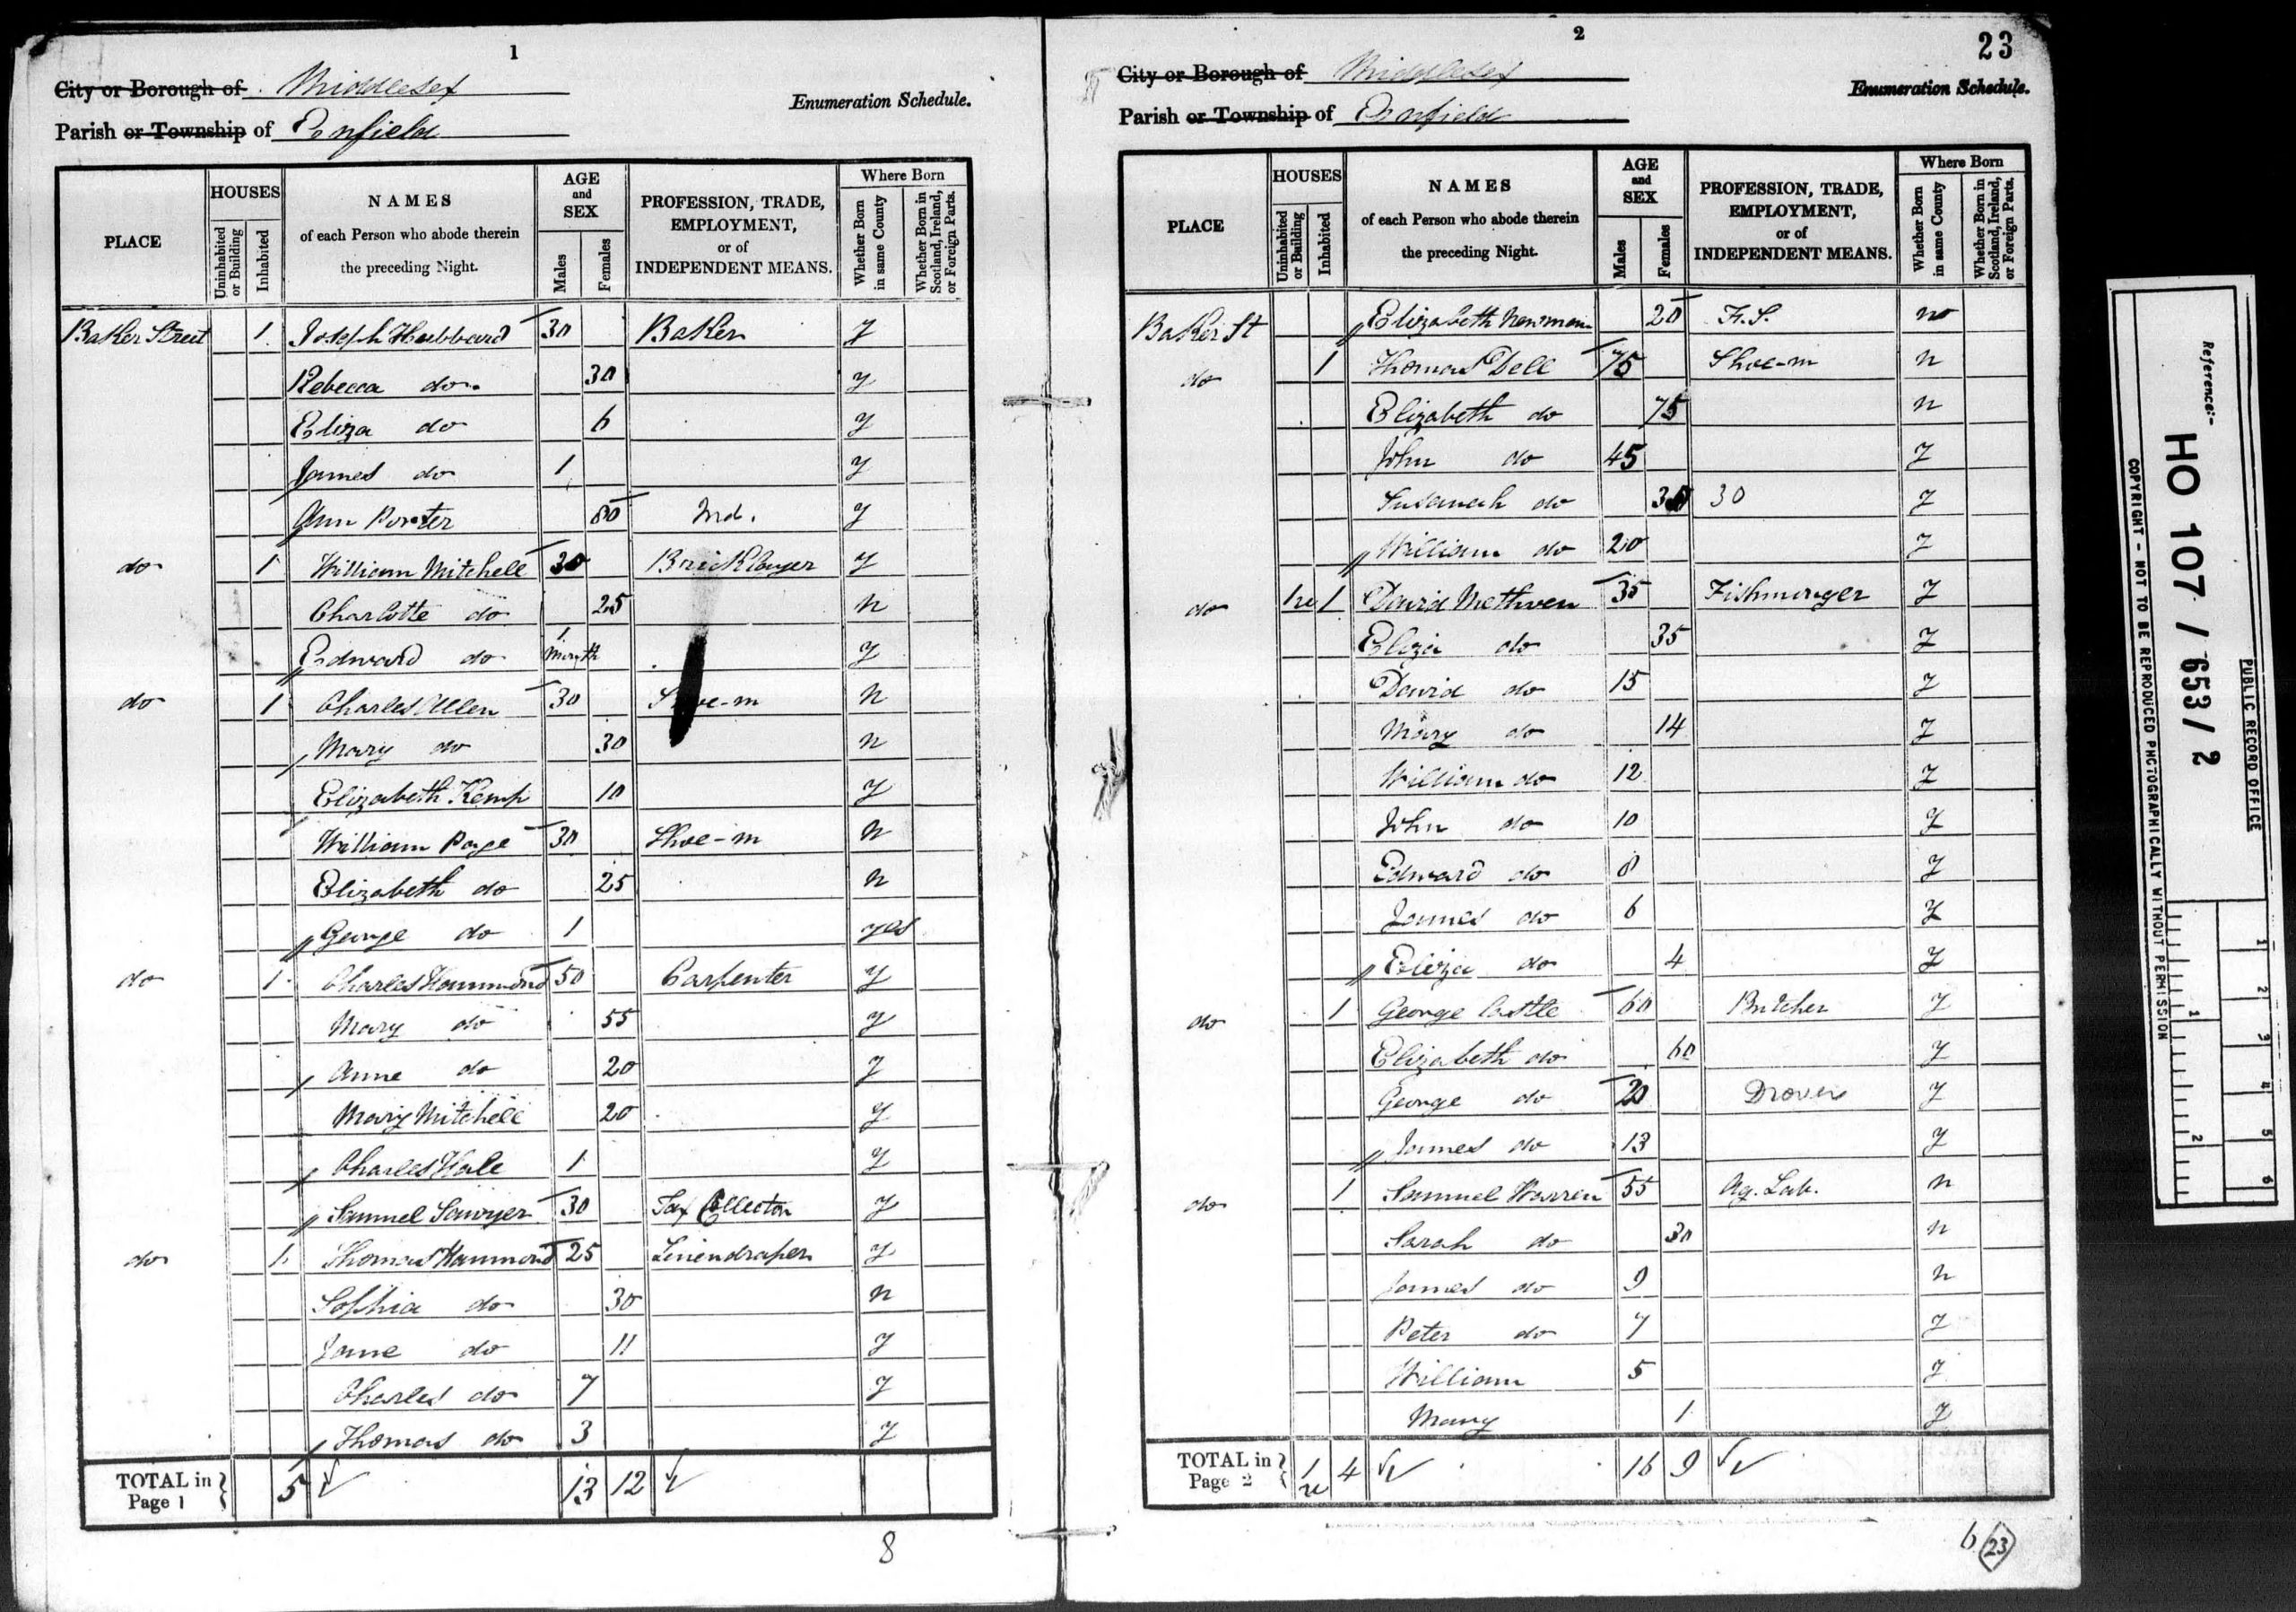 1
City or Borough of Middlesex
Enumeration Schedule.
Parish or Township of Enfield
PLACE
HOUSES
Uninhabited or Building
Inhabited
NAMES
of each Person who abode therein
the preceding Night.
AGE and SEX
Males
Females
PROFESSION, TRADE, EMPLOYMENT, or of INDEPENDENT MEANS.
Where Born
Whether Born in same County
Whether Born in Scotland, Ireland, or Foreign Parts.
Baker Street 1 Joseph Hubbard 30 Baker y
Rebecca do 30 y
Eliza do 6 y
James do 1 y
Ann Porter 80 Ind. y
do 1 William Mitchell 30 Bricklayer y
Charlotte do 25 n
Edward do 1 Month y
do 1 Charles Allen 30 Shoe-m n
Mary do 30 n
Elizabeth Kemp 10 y
William Page 30 Shoe-m n
Elizabeth do 25 n
George do 1 yes
do 1 Charles Hammond 50 Carpenter y
Mary do 55 y
Anne do 20 y
Mary Mitchell 20 y
Charles Hale 1 y
Samuel Sawyer 30 Tax Collector y
do 1 Thomas Hammond 25 Linendraper y
Sophia do 30 n
Jane do 11 y
Charles do 7 y
Thomas do 3 y
TOTAL in Page 1 5 13 12
8
2
23
City or Borough of Middlesex
Enumeration Schedule.
Parish or Township of Enfield
PLACE
HOUSES
Uninhabited or Building
Inhabited
NAMES
of each Person who abode therein
the preceding Night.
AGE and SEX
Males
Females
PROFESSION, TRADE, EMPLOYMENT, or of INDEPENDENT MEANS.
Where Born
Whether Born in same County
Whether Born in Scotland, Ireland, or Foreign Parts.
Baker St Elizabeth Newman 20 F.S. no
do 1 Thomas Dell 75 Shoe-m n
Elizabeth do 75 n
John do 45 y
Susanah do 30 30 y
William do 20 y
do 1u 1 David Methven 35 Fishmonger y
Eliza do 35 y
David do 15 y
Mary do 14 y
William do 12 y
John do 10 y
Edward do 8 y
James do 6 y
Eliza do 4 y
do 1 George Castle 60 Butcher y
Elizabeth do 60 y
George do 20 Drover y
James do 13 y
do 1 Samuel Warren 55 Ag. Lab. n
Sarah do 30 n
James do 9 n
Peter do 7 y
William 5 y
Mary 1 y
TOTAL in Page 2 1u 4 16 9
6 23
Reference:-
HO 107 / 653 / 2
PUBLIC RECORD OFFICE
COPYRIGHT - NOT TO BE REPRODUCED PHOTOGRAPHICALLY WITHOUT PERMISSION
1 2 3 4 5 6
1 2